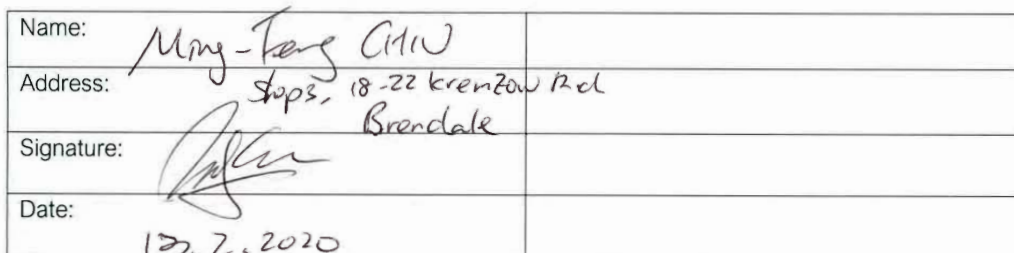 Name: Ming-Feng CHIU
Address: Shop3, 18-22 Kremzow Rd
Brendale
Signature:
Date:
2020